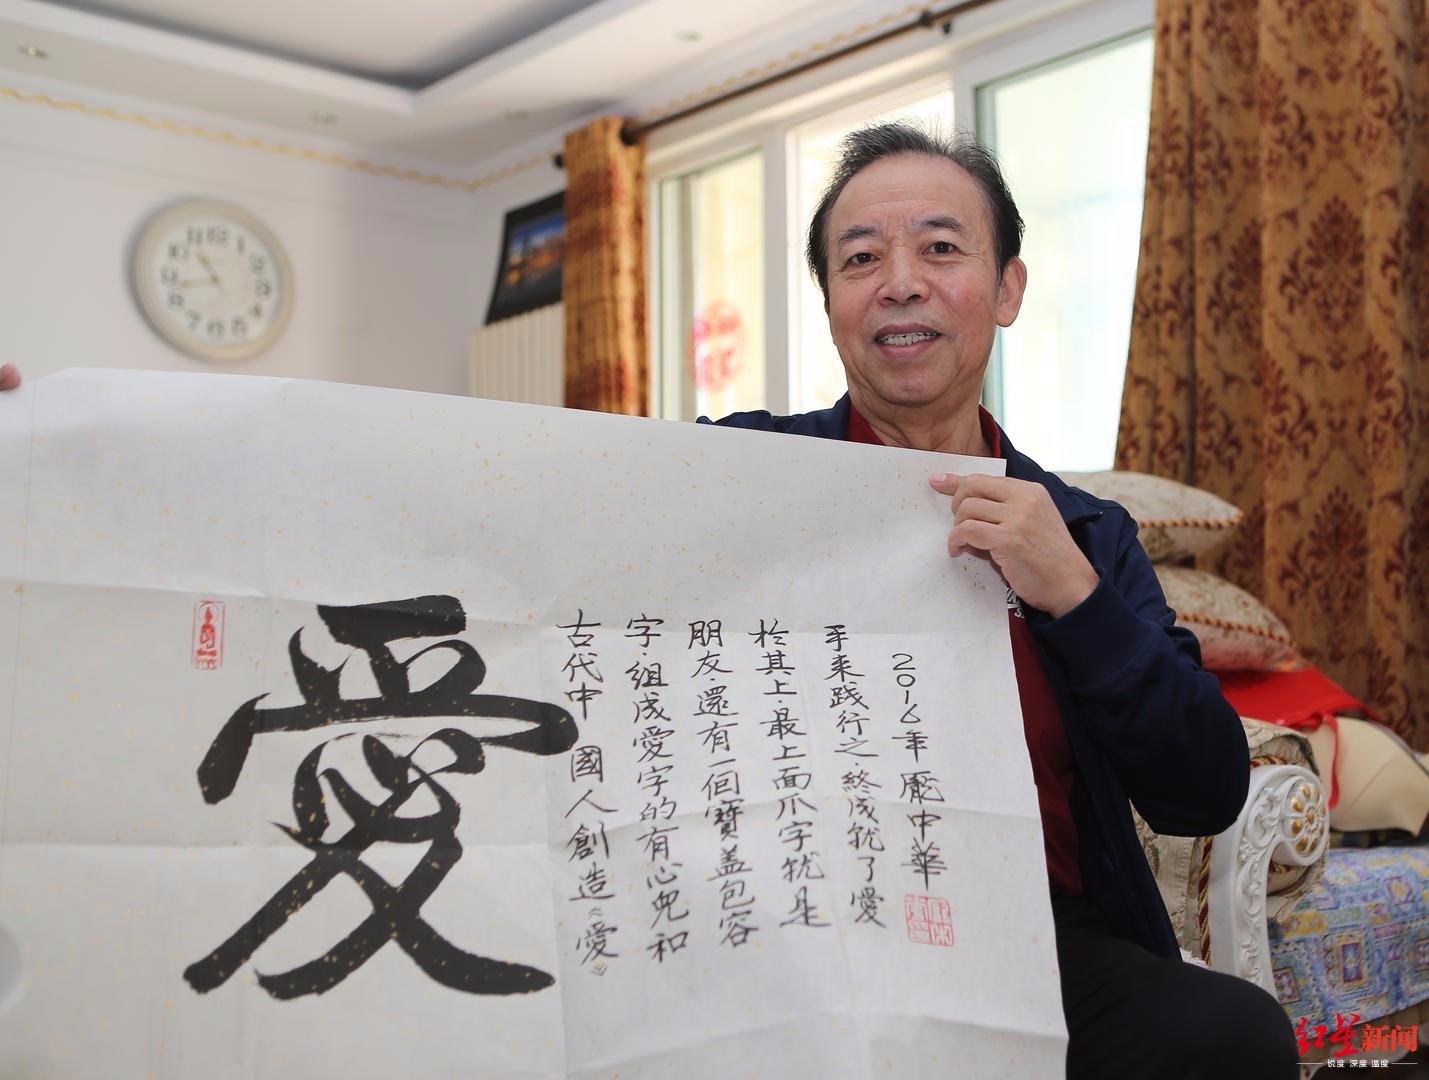 愛
古代中國人創造《愛》
字.組成愛字的有心兒和
朋友.還有一個寶盖包容
於其上.最上面爪字就是
手来踐行之.終成就了愛
2016年 龐中華
红星新闻
锐度 深度 温度